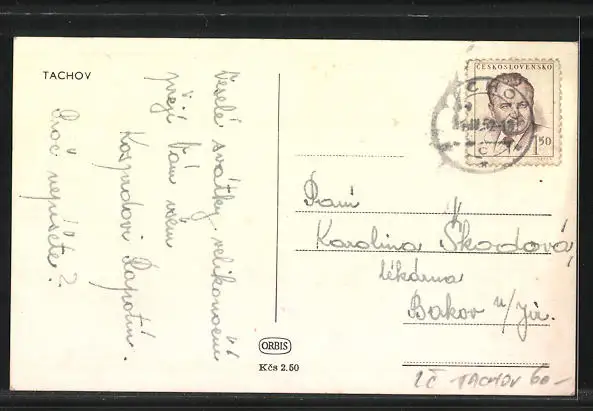 TACHOV
Veselé svátky velikonoční
přejí Vám všem
Kospudovi Šapotín.
Proč nepíšete?
ČESKOSLOVENSKO
1.50
Paní
Karolina Škardová,
lékárna
Bakov n/Jiz.
ORBIS
Kčs 2.50
LČ TACHOV 60-